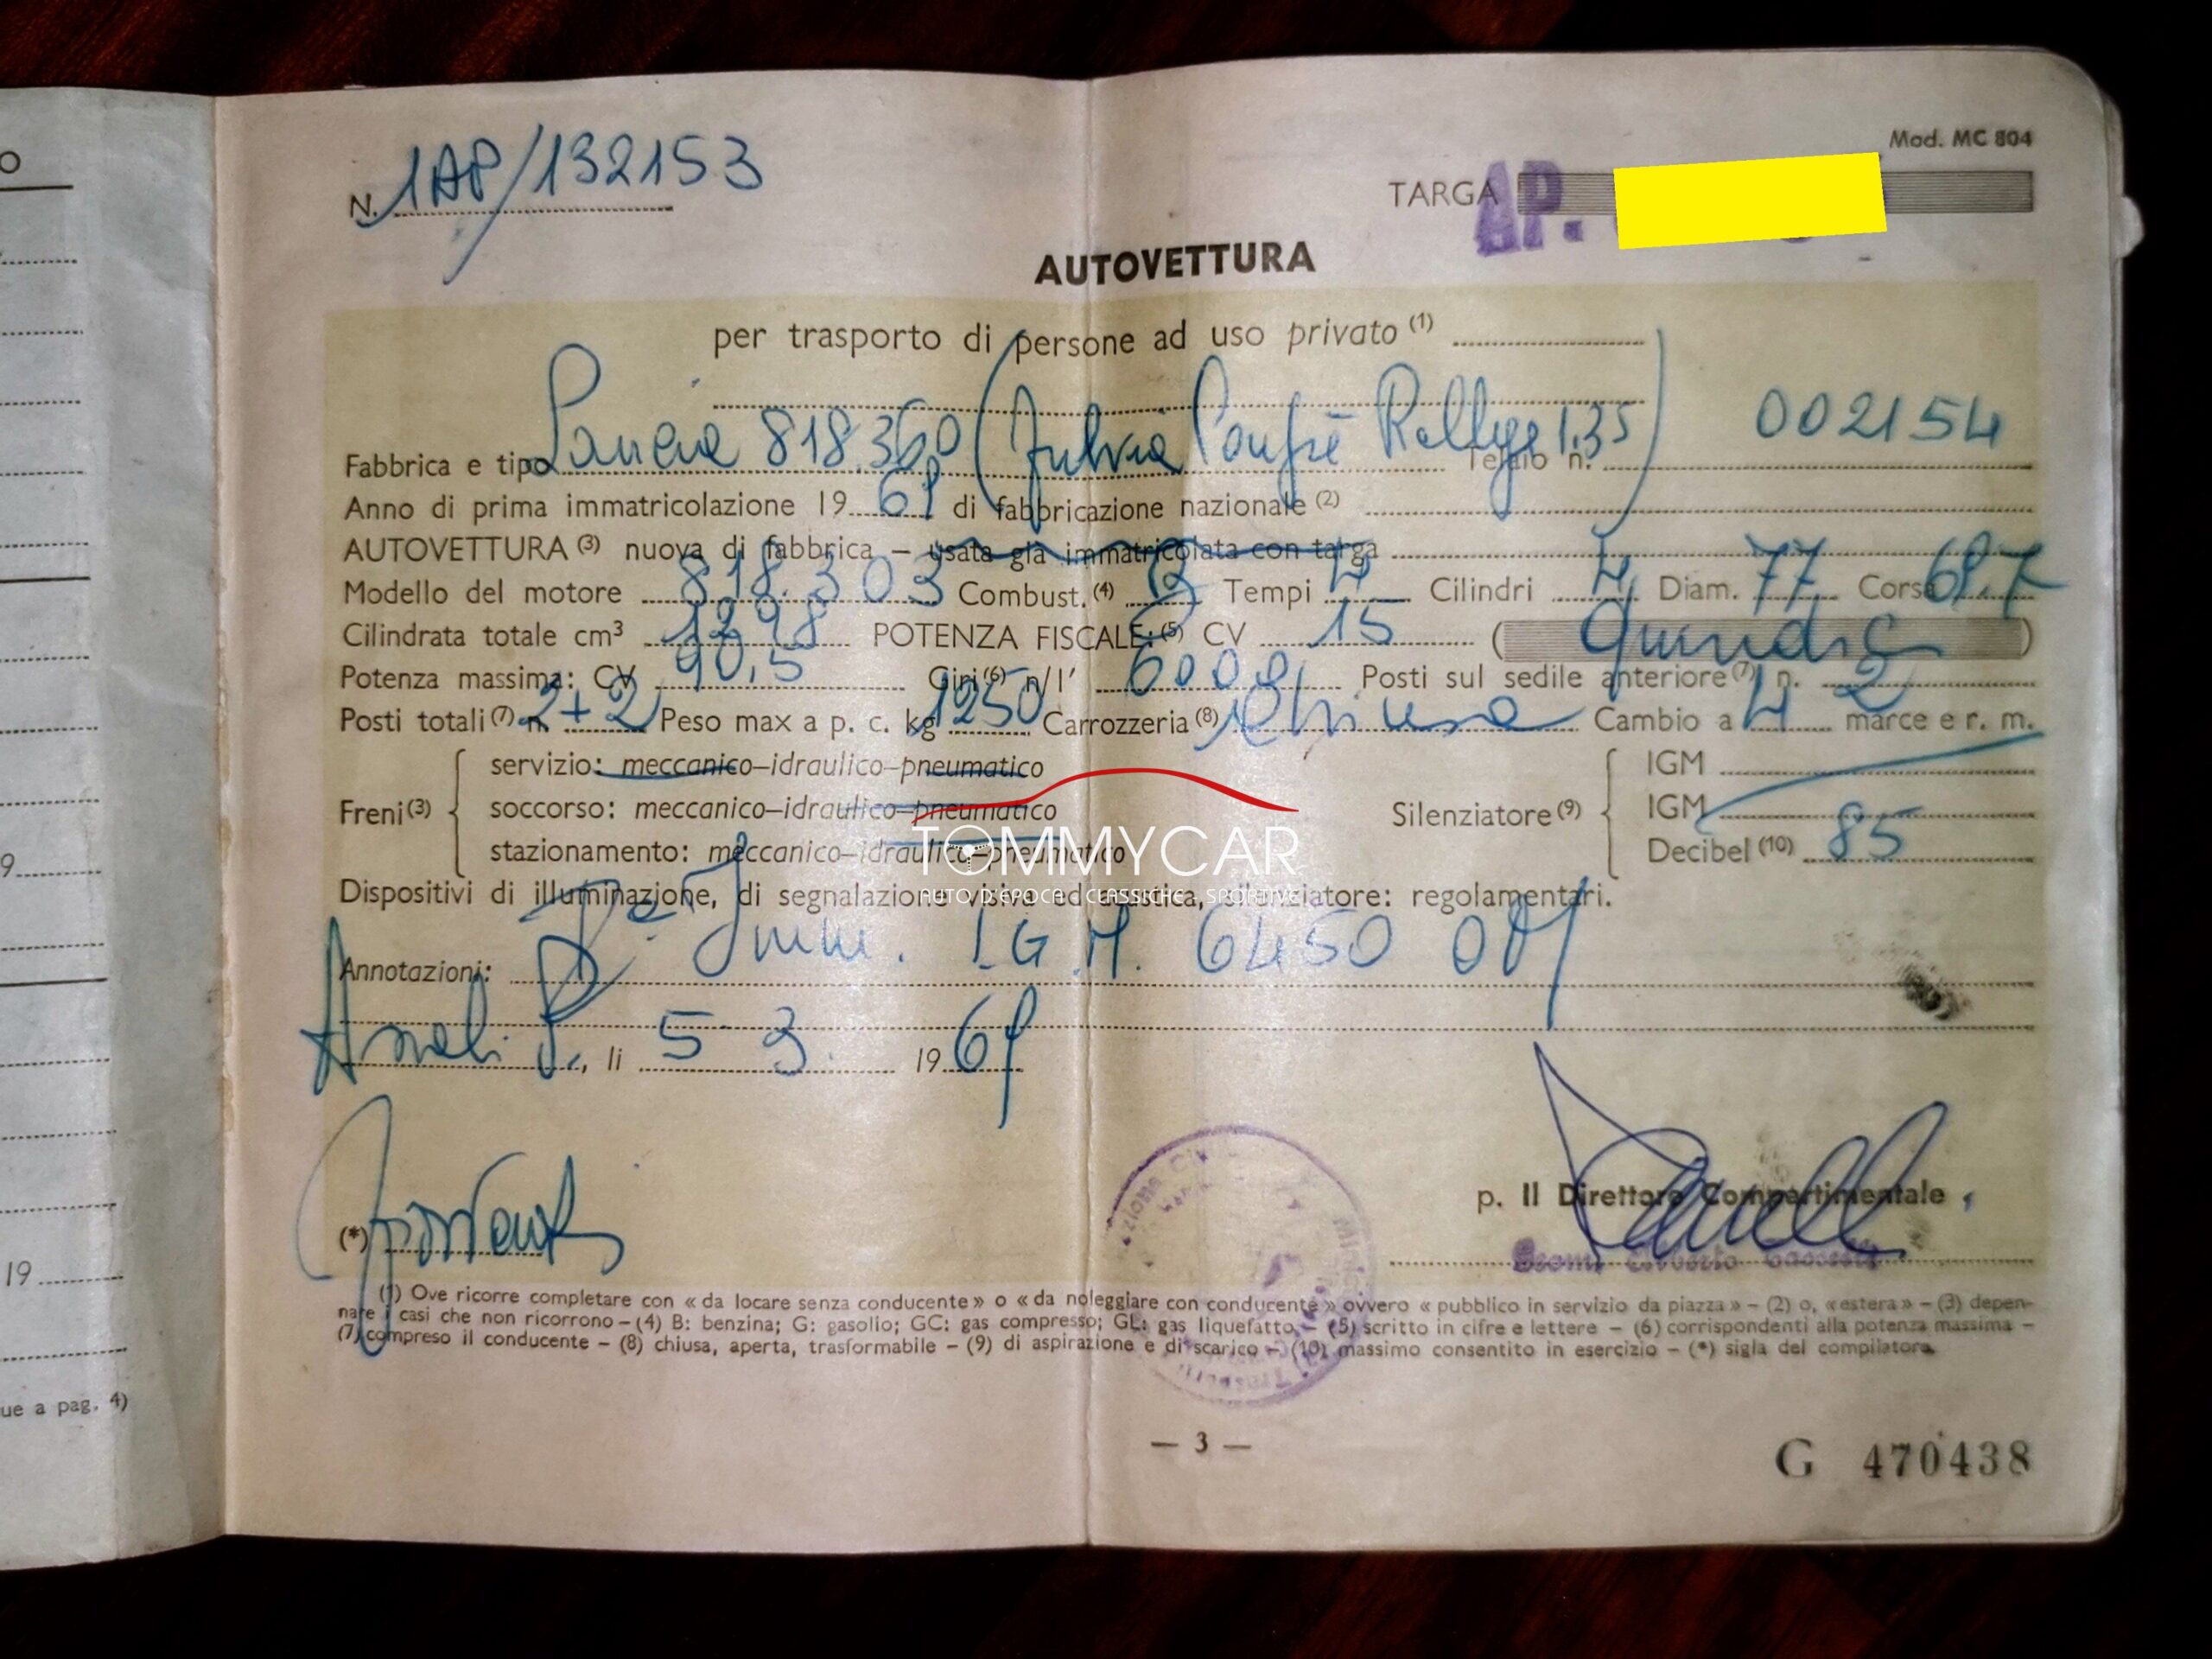 O
Mod. MC 804
N. 1AP/132153
TARGA AP.
AUTOVETTURA
per trasporto di persone ad uso privato (1)
Fabbrica e tipo Lancia 818.360 (Fulvia Coupé Rallye 1.3 S) Telaio n. 002154
Anno di prima immatricolazione 19 69 di fabbricazione nazionale (2)
AUTOVETTURA (3) nuova di fabbrica – usata già immatricolata con targa
Modello del motore 818.303 Combust. (4) B Tempi 4 Cilindri 4 Diam. 77 Corsa 69.7
Cilindrata totale cm³ 1298 POTENZA FISCALE: (5) CV 15 ( quindici )
Potenza massima: CV 90,5 Giri (6) n/1' 6000 Posti sul sedile anteriore (7) n. 2
Posti totali (7) n. 2+2 Peso max a p. c. kg 1250 Carrozzeria (8) Chiusa Cambio a 4 marce e r. m.
Freni (3)
servizio: meccanico–idraulico–pneumatico
soccorso: meccanico–idraulico–pneumatico
stazionamento: meccanico–idraulico–pneumatico
Silenziatore (9)
IGM
IGM
Decibel (10) 85
TOMMYCAR
AUTO D'EPOCA CLASSICHE SPORTIVE
Dispositivi di illuminazione, di segnalazione visiva ed acustica, silenziatore: regolamentari.
Annotazioni: Imm. I.G.M. 6450 OM
Ascoli P., li 5 3. 19 69
9
p. Il Direttore Compartimentale
(*)
19
(1) Ove ricorre completare con « da locare senza conducente » o « da noleggiare con conducente » ovvero « pubblico in servizio da piazza » – (2) o, « estera » – (3) depen-
nare i casi che non ricorrono – (4) B: benzina; G: gasolio; GC: gas compresso; GL: gas liquefatto – (5) scritto in cifre e lettere – (6) corrispondenti alla potenza massima –
(7) compreso il conducente – (8) chiusa, aperta, trasformabile – (9) di aspirazione e di scarico – (10) massimo consentito in esercizio – (*) sigla del compilatore.
ue a pag. 4)
— 3 —
G 470438